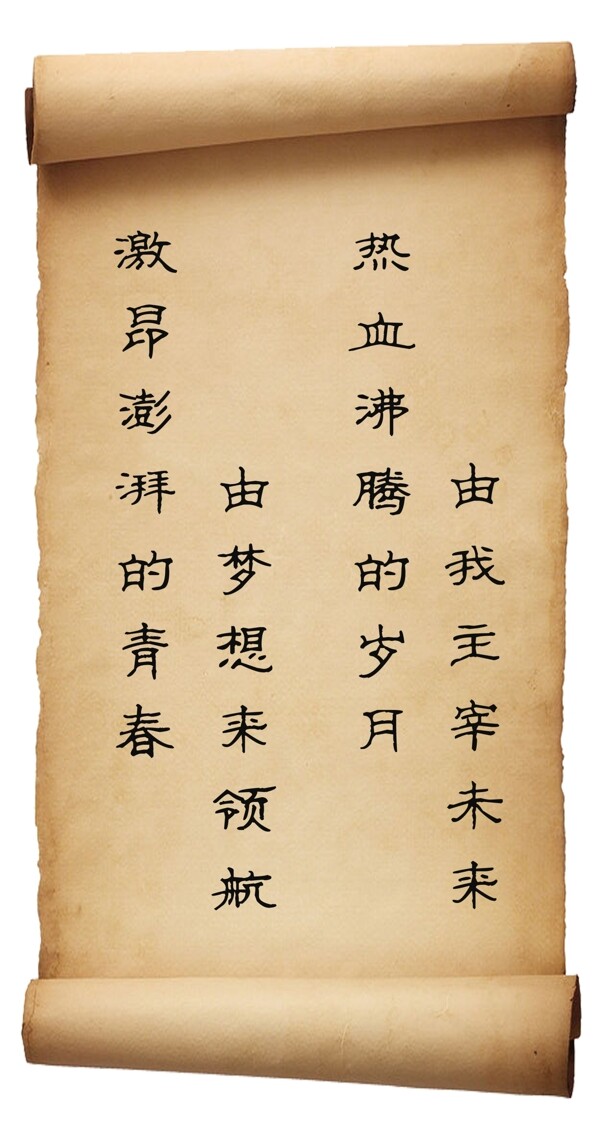 激昂澎湃的青春
由梦想来领航
热血沸腾的岁月
由我主宰未来